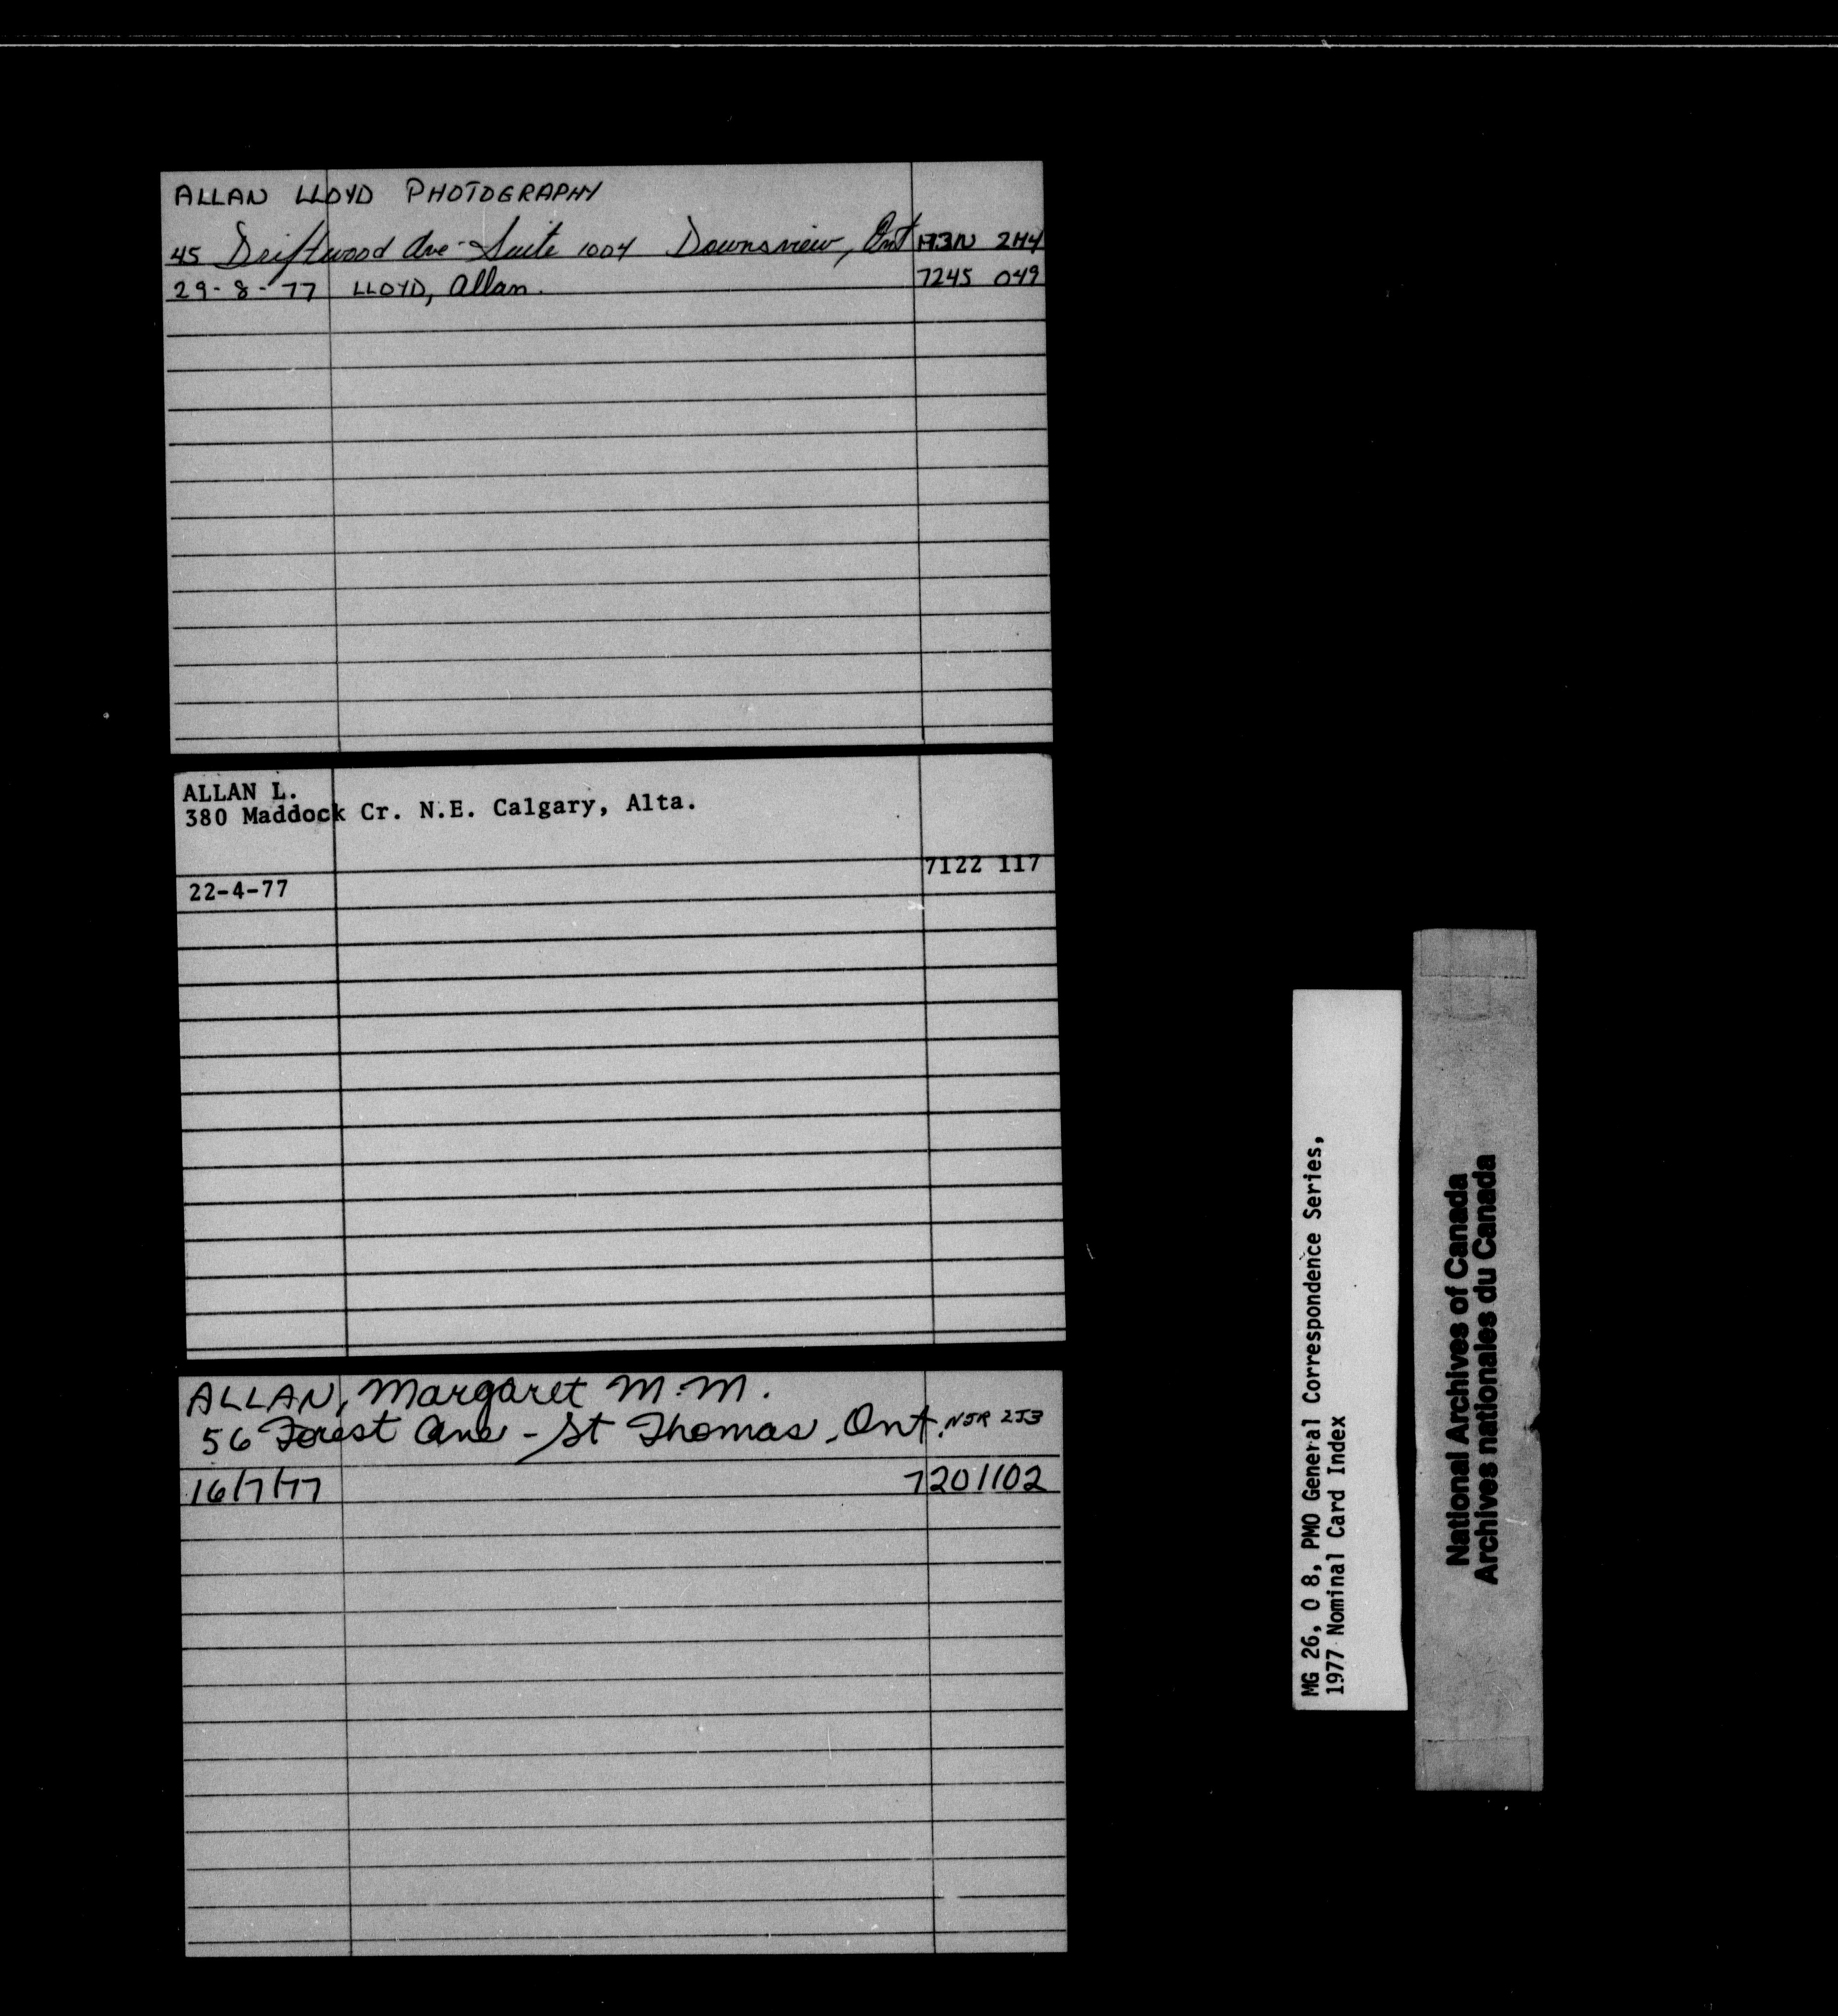 ALLAN LLOYD PHOTOGRAPHY
45 Driftwood Ave - Suite 1004 Downsview, Ont M3N 2H4
29-8-77 LLOYD, Allan. 7245 049
ALLAN L.
380 Maddock Cr. N.E. Calgary, Alta.
7122 117
22-4-77
ALLAN, Margaret M.M.
56 Forest Ave - St Thomas, Ont. N5R 2J3
16/7/77 7201102
MG 26, O 8, PMO General Correspondence Series,
1977 Nominal Card Index
National Archives of Canada
Archives nationales du Canada